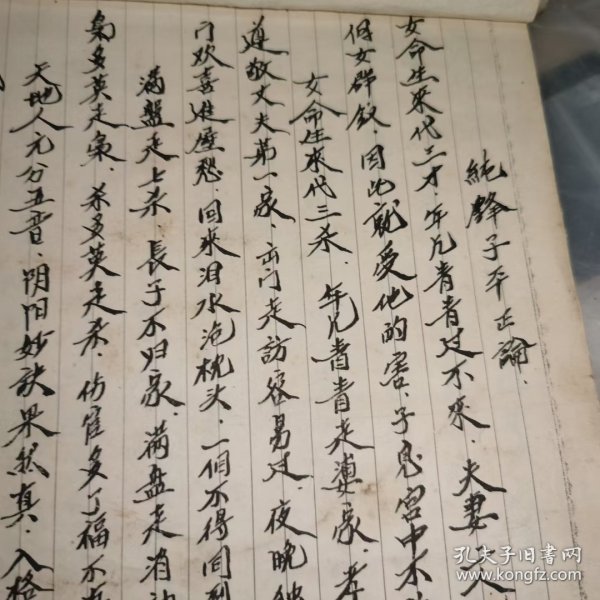 純鋒子平正論.
女命生來代二才.年凡青青过不來.夫妻人
但女群釵.因此就受他的害.子息宮中不
女命生來代三杀.年凡青青走婆家.孝
遵敬丈夫第一家.出门走訪容易过.夜晚
门欢喜進 回來泪水泡枕头.一個不得回到
满盤走七杀.長子不归家.满盘走
枭多莫走枭.杀多莫走杀.伤官多了福不
天地人元分五音.阴阳妙訣果然真.入格
孔夫子旧书网
www.kongfz.com